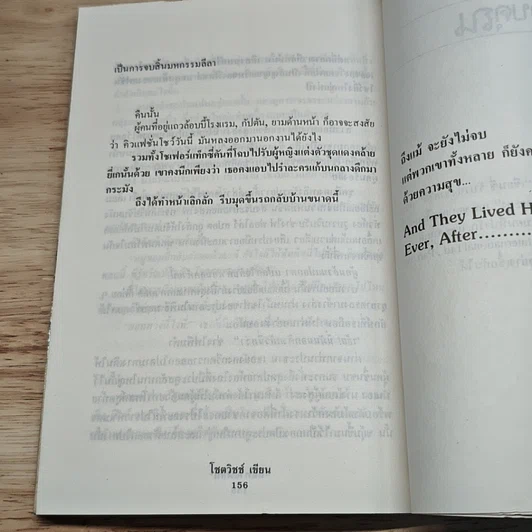 เป็นการจบสิ้นมหกรรมลีลา
คืนนั้น
ผู้คนที่อยู่แถวล้อบบี้โรงแรม, กัปตัน, ยามด้านหน้า ก็อาจจะสงสัย
ว่า คิวแฟชั่นโชว์วันนี้ มันหลงออกมานอกงานได้ยังไง
รวมทั้งโชเฟอร์แท็กซี่คันที่โฉบไปรับผู้หญิงแต่งตัวชุดแดงคล้าย
ยี่เกนั้นด้วย เขาคงนึกเพียงว่า เธอคงแอบไปรำละครแก้บนกลางดึกมา
กระมัง
ถึงได้ทำหน้าเลิกลั่ก รีบมุดขึ้นรถกลับบ้านขนาดนี้
โชติวิชช์ เขียน
156
ถึงแม้ จะยังไม่จบ
แต่พวกเขาทั้งหลาย ก็ยังค
ด้วยความสุข...
And They Lived H
Ever, After..........